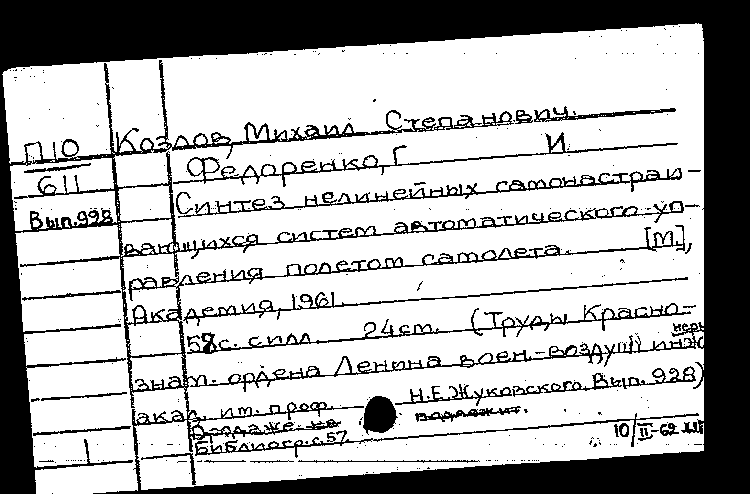 П10 Козлов, Михаил Степанович.
611 Федоренко, Г И
Синтез нелинейных самонастраи-
Вып.998
вающихся систем автоматического уп-
равления полетом самолета. [М.],
Академия, 1961.
58с. с илл. 24см. (Труды Красно-
знам. ордена Ленина воен.-воздуш инж
акад. им. проф. Н.Е.Жуковского. Вып. 928)
Продаже не подлежит.
1 Библиогр. с.57 10/II-62